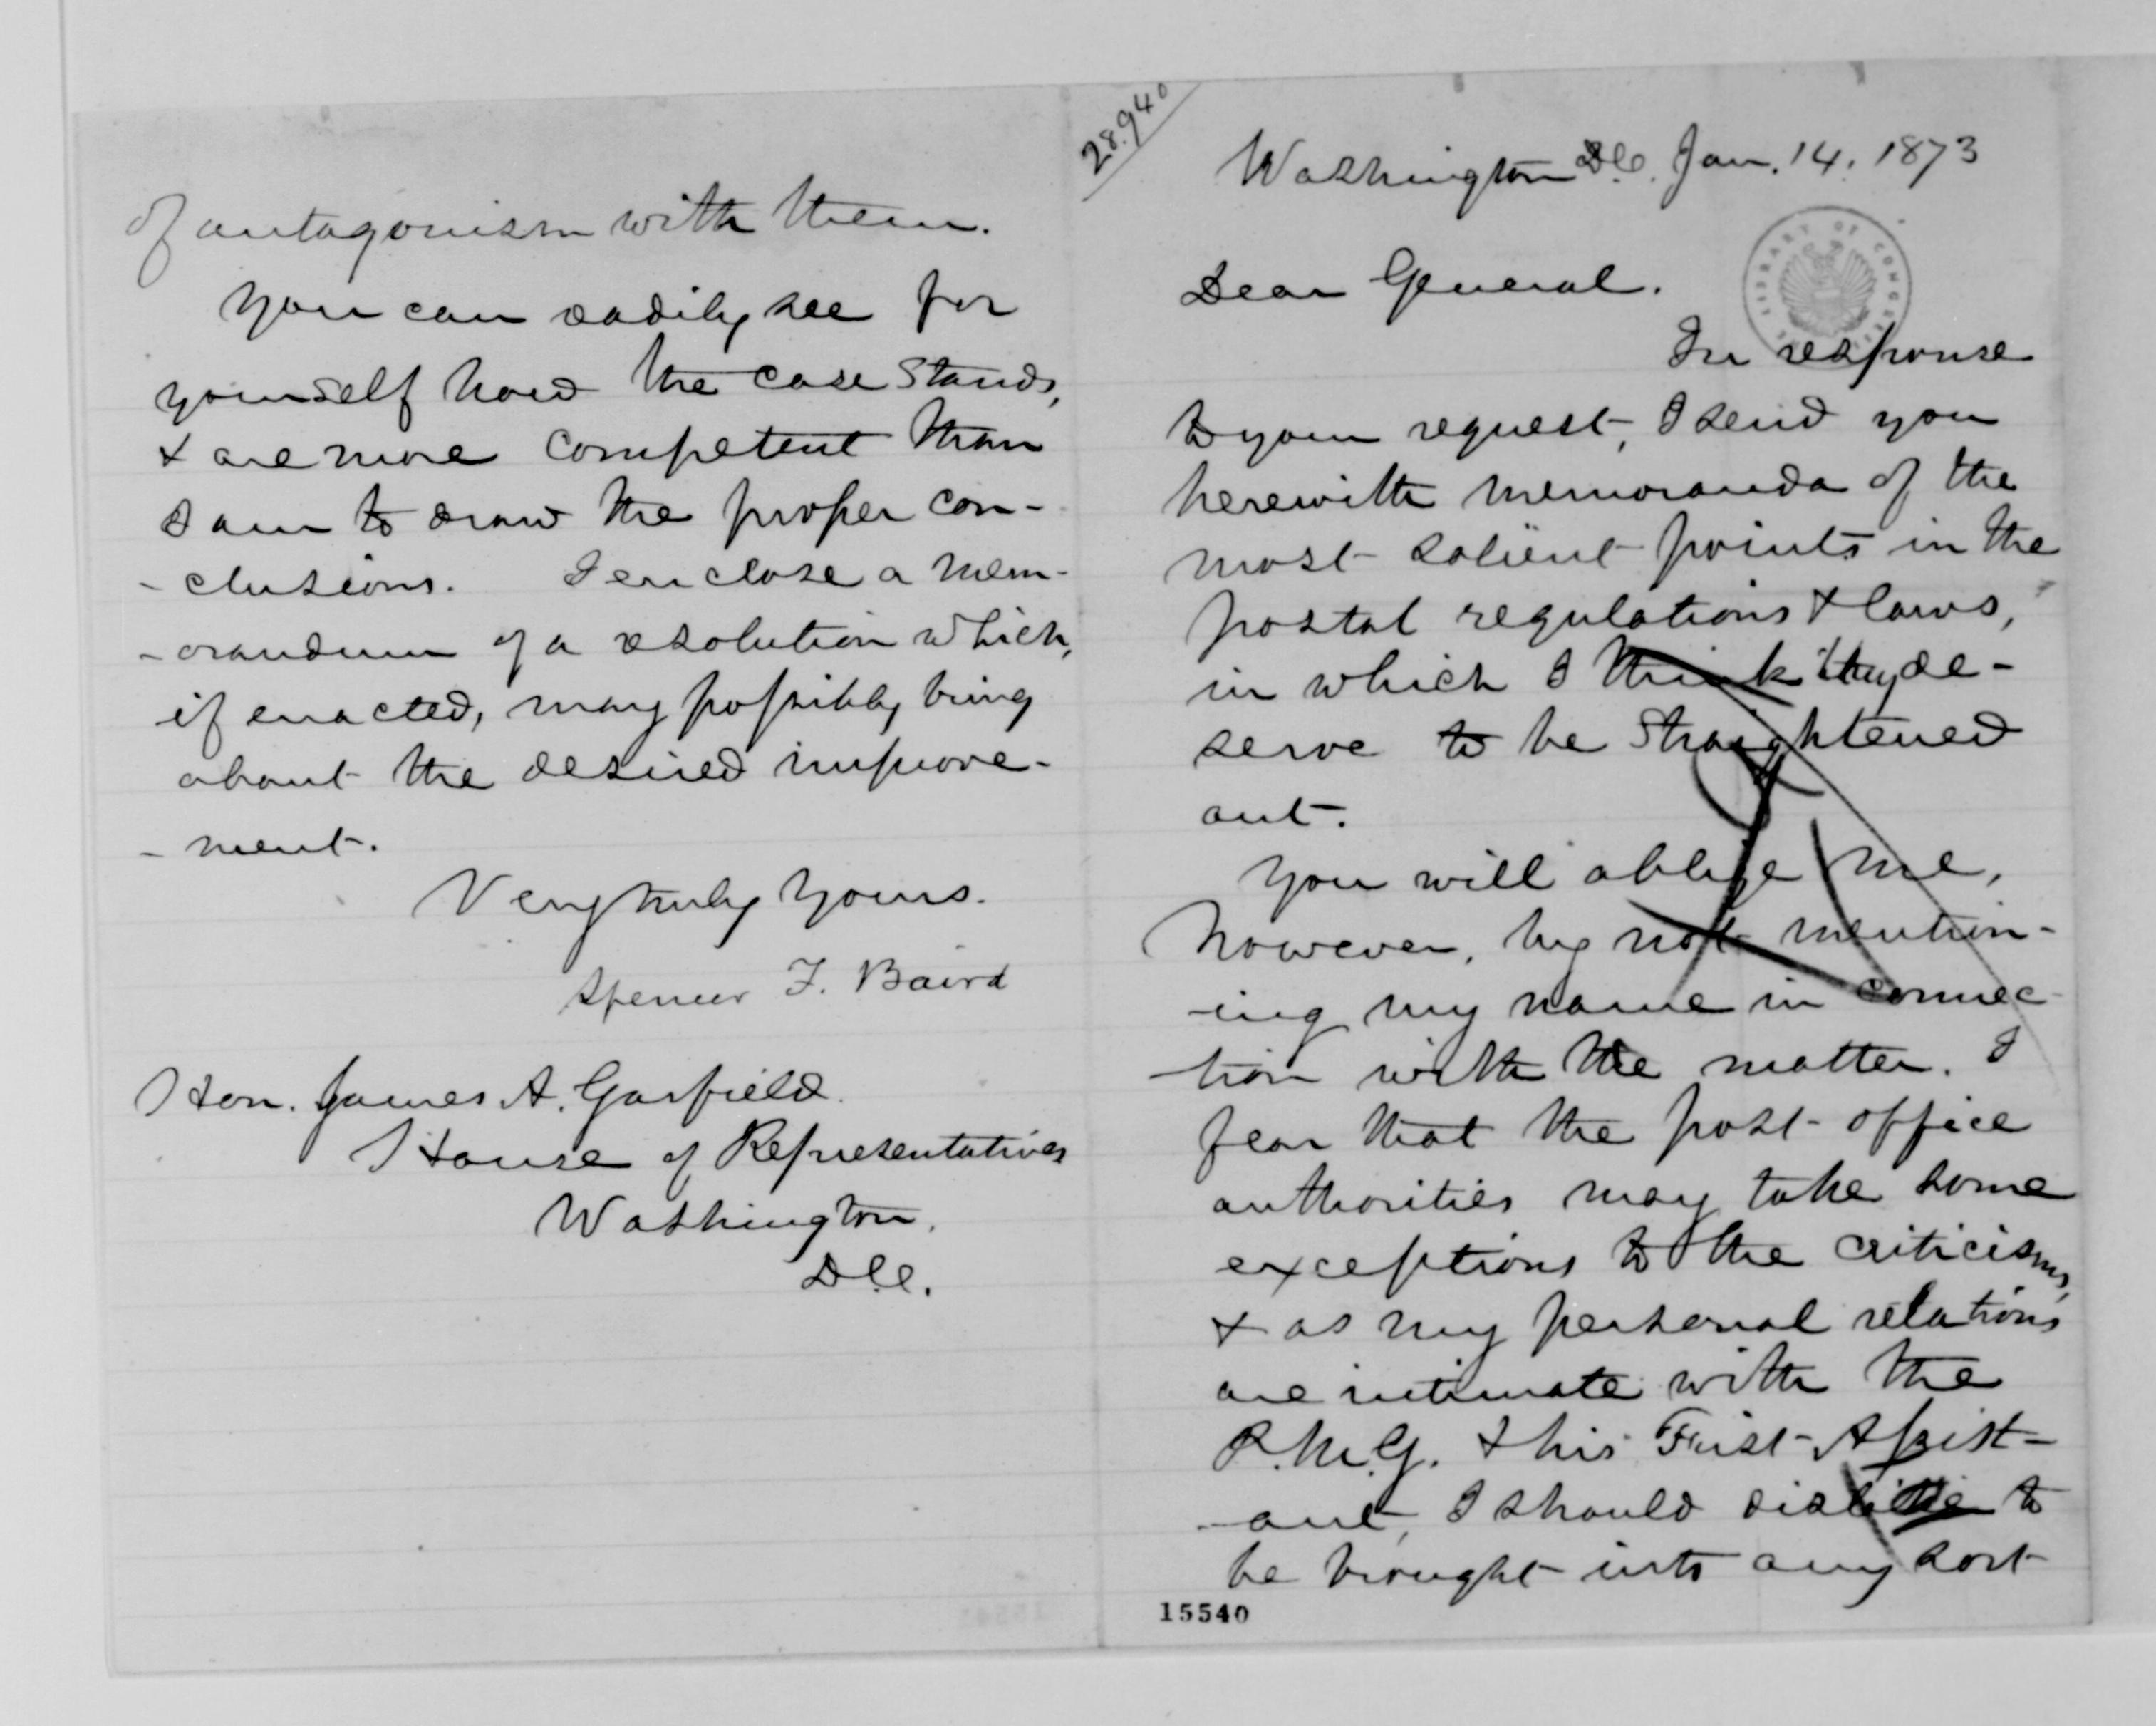 28.940
Washington D.C. Jan. 14. 1873
Dear General.
In response
to your request, I send you
herewith memoranda of the
most salient points in the
postal regulations & laws,
in which I think they de-
serve to be straightened
out.
You will oblige me,
however, by not mention-
-ing my name in connec-
-tion with the matter. I
fear that the post-office
authorities may take some
exceptions to the criticisms,
& as my personal relations
are intimate with the
P.M.G. & his First Assist-
-ant, I should dislike to
be brought into any sort
15540
of antagonism with them.
You can readily see for
yourself how the case stands,
& are more competent than
I am to draw the proper con-
-clusions. I enclose a mem-
-orandum of a resolution which,
if enacted, may possibly bring
about the desired improve-
-ment.
Very truly yours.
Spencer F. Baird
Hon. James A. Garfield.
House of Representatives
Washington.
D.C.
LIBRARY OF CONGRESS